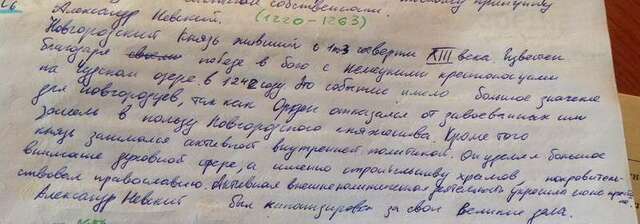 принципу
Александр Невский. (1220-1263)
Новгородский Князь живший в 1 и 3 четверти XIII века. Известен
благодаря победе в бою с немецкими крестоносцами
на Чудском озере в 1242 году. Это событие имело большое значение
для Новгородцев, так как Орден отказался от завоеванных им
земель в пользу Новгородского княжества. Кроме того
князь занимался активной внутренней политикой. Он уделял большое
внимание духовной сфере, а именно строительству храмов покровитель-
ствовал православию. Активная внешнеполитическая деятельность
Александр Невский был канонизирован за свои Великие дела.